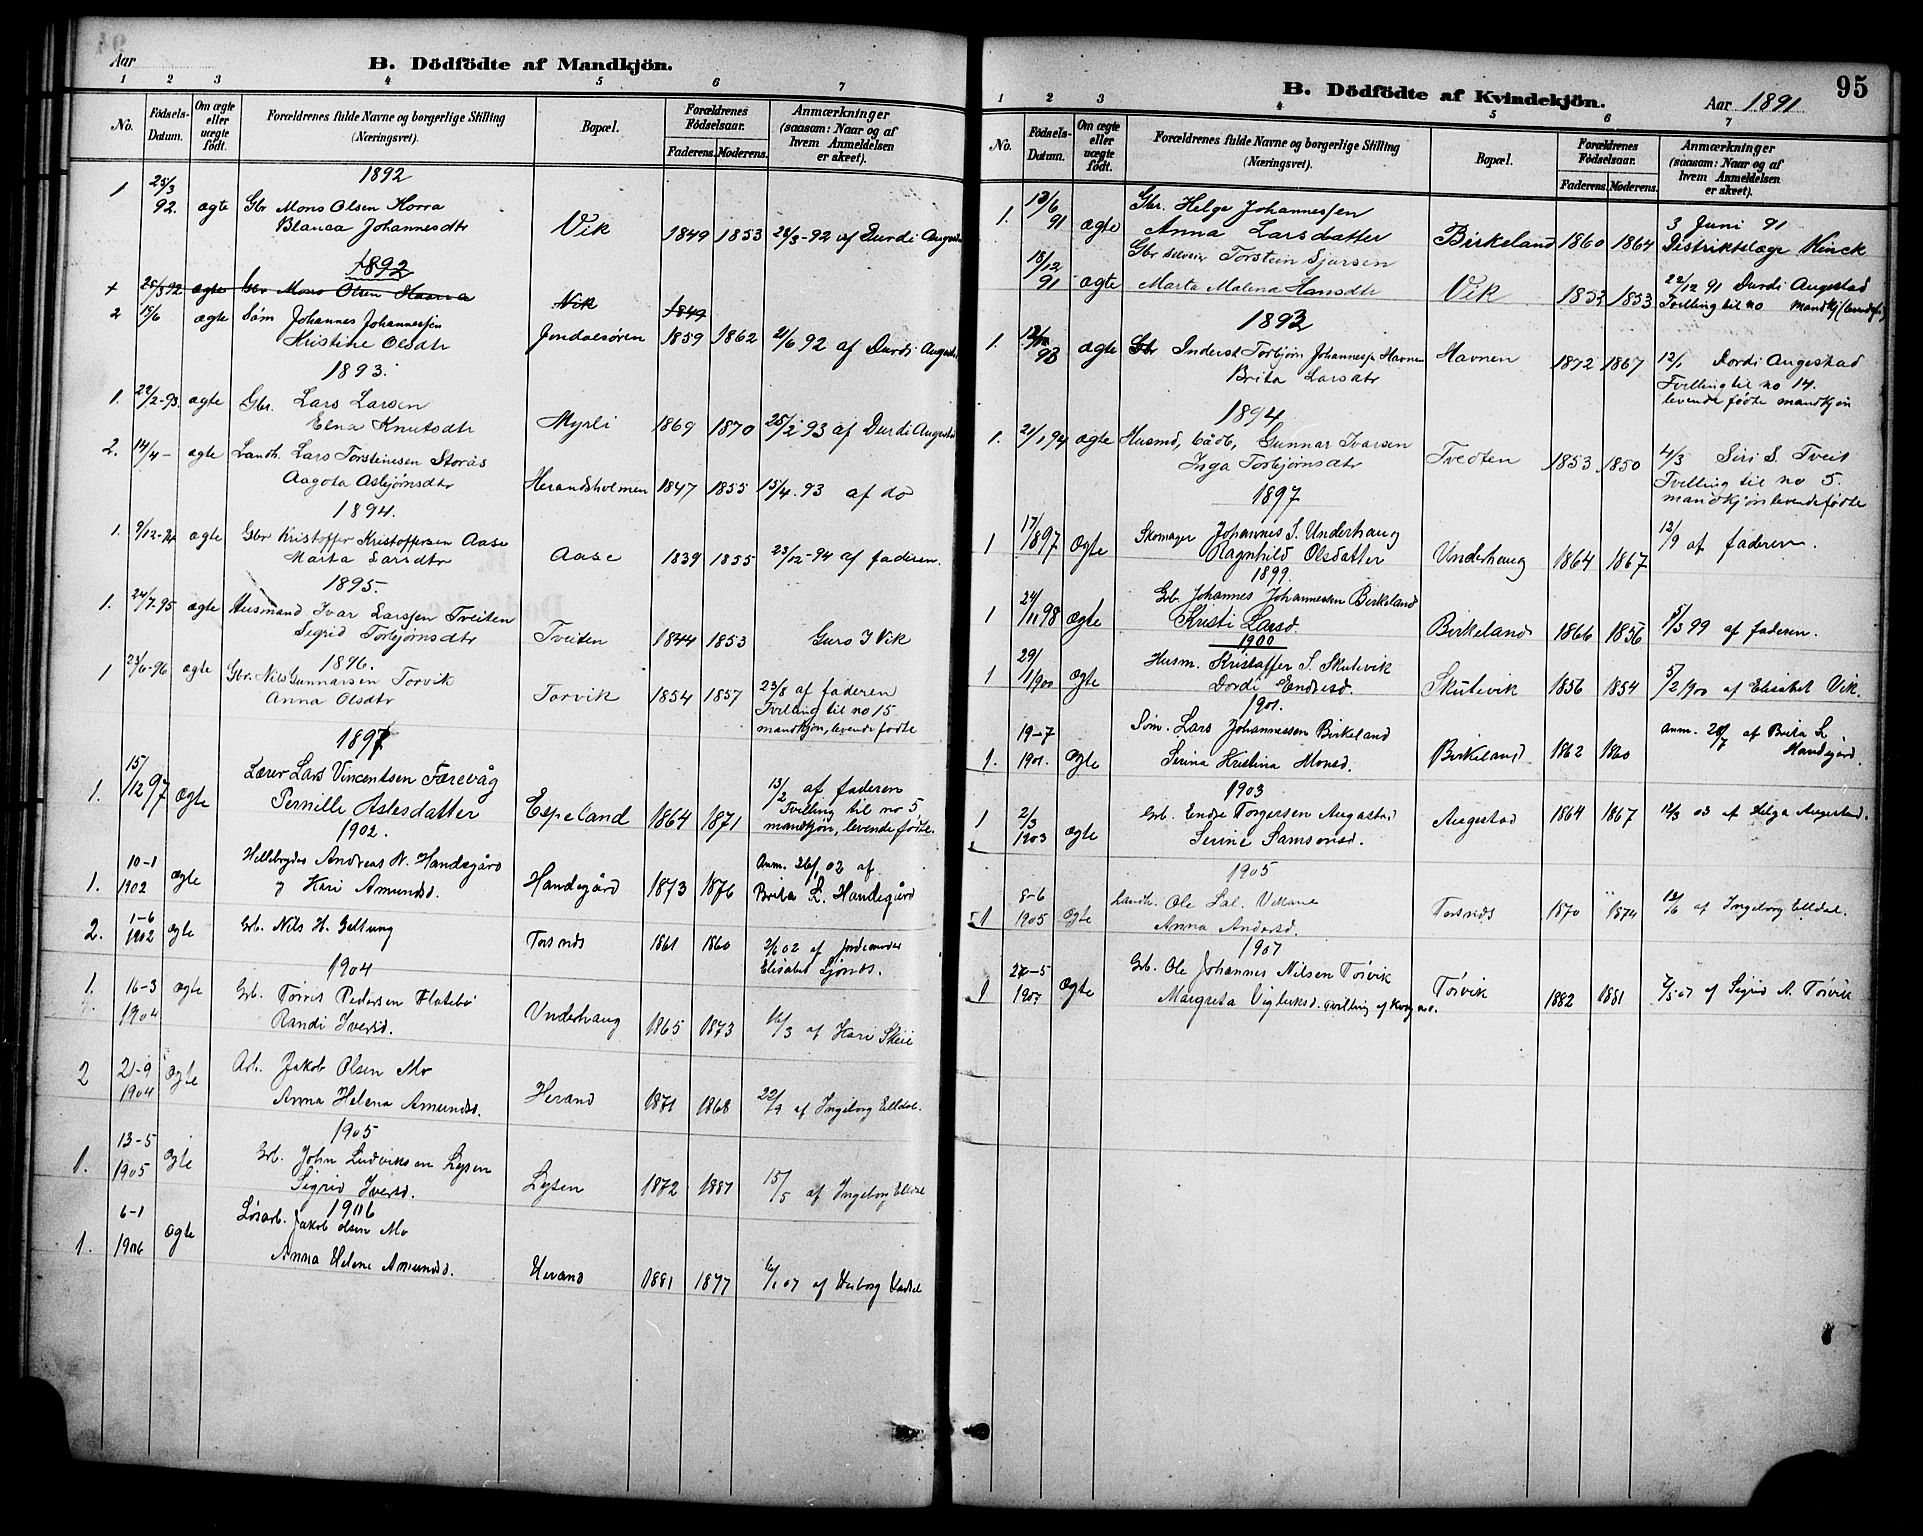 Aar
B. Dödfödte af Mandkjön.
1 2 3 4 5 6 7
No.
Födsels-Datum.
Om ægte eller uægte födt.
Forældrenes fulde Navne og borgerlige Stilling (Næringsvei).
Bopæl.
Forældrenes Födselsaar.
Faderens. Moderens.
Anmærkninger (saasom: Naar og af hvem Anmeldelsen er skeet).
1892
1 25/3 92. ægte Gbr Mons Olsen Horra
Blanca Johannesdtr Vik 1849 1853 28/3-92 af Durdi Augesta
1892
+ 25/3 92 ægte Gbr Mons Olsen Haarra Vik 1849
2 15/6 ægte Søm Johannes Johannesjen
Kristine Olsdtr Jondalsören 1859 1862 21/6 92 af Durdi Augest
1893.
1. 22/2-93. ægte Gbr. Lars Larsen
Elna Knutsdtr Myrli 1869 1870 25/2 93 af Durdi Augesta
2. 14/4 - ægte Landh. Lars Torsteinsen Storås
Aagota Asbjørnsdtr Herandsholmen 1847 1855 15/4. 93 af do
1894.
1. 9/12-94 ægte Gbr Kristoffer Kristoffersen Aase
Marta Larsdtr Aase 1839 1855 23/12-94 af faderen.
1895.
1. 24/7-95 ægte Husmand Ivar Larsjen Tveiten
Sigrid Torbjørnsdtr Tveiten 1844 1853 Guro I Vik
1896.
1 23/6-96 ægte Gbr. Nils Gunnarsen Torvik
Anna Olsdtr Torvik 1854 1857 23/8 af faderen
Tvilling til no 15
mandkjøn, levende fødte
1897
1. 15/12 97 Ægte Lærer Lars Vincentsen Færevåg
Pernille Aslesdatter Espeland 1864 1871 13/2 af faderen
Tvilling til no 5
mandkjøn, levende fødte.
1902.
1. 10-1 1902 Ægte Andreas N. Handegård
og Kari Amundsd. Handegård 1873 1876 Anm. 26/1 02 af
Brita L. Handegård
2. 1-6 1902 Ægte Grb. Nils H. Geltung Torsnes 1861 1860 2/6 02 af Jordemoder
Elisabet
1904
1. 16-3 1904 Ægte Grb. Torris Pedersen Flatebö
Randi Iversd. Underhaug 1865 1873 16/3 af Kari Skeie
2 21-9 1904 Ægte Arb. Jakob Olsen Mo
Anna Helena Amundsd. Herand 1871 1868 22/9 af Ingeborg Elldal.
1905
1. 13-5 1905 Ægte Grb. John Ludviksen Lysen
Sigrid Iversd. Lysen 1872 1887 15/5 af Ingeborg Elldal
1906
1. 6-1 1906 Ægte Løsarb. Jakob Olsen Mo
Anna Helene Amundsd. Herand 1881 1877 16/1 07 af
B. Dödfödte af Kvindekjön.
Aar 1891 95
1 2 3 4 5 6 7
No.
Födsels-Datum.
Om ægte eller uægte födt.
Forældrenes fulde Navne og borgerlige Stilling (Næringsvei).
Bopæl.
Forældrenes Födselsaar.
Faderens. Moderens.
Anmærkninger (saasom: Naar og af hvem Anmeldelsen er skeet).
1. 13/6 91 ægte Gbr. Helge Johannesjen
Anna Larsdatter Birkeland 1860 1864 3 Juni 91
Distriktslæge Kinck
18/12 91 ægte Gbr Selveier Torstein Sjursen
Marta Malena Hansdtr Vik 1852 1853. 22/12 91 Durdi Augestad
Tvilling til no mandkj
1893
1. 93 ægte Gbr Inderst Torbjørn Johannesjn Havnen
Brita Larsdtr Havnen 1872 1867 12/1 Dordi Augestad
Tvilling til no 14.
levende fødte mandkjøn
1894
1. 21/1 94 ægte Husmd, bådb, Gunnar Ivarsen
Inga Torbjørnsdtr Tvedten 1853 1850 4/3 Siri S. Tveit
Tvilling til no 5.
mandkjøn levende fødte
1897
1 17/8 97 Ægte Skomager Johannes S. Underhaug
Ragnhild Olsdatter Underhaug 1864 1867 12/9 af faderen.
1899.
1 24/11 98 Ægte Grb. Johannes Johannessen Birkeland
Kristi Larsd. Birkeland 1866 1856 5/3 99 af faderen.
1900
1 29/11 1900 Ægte Husm. Kristoffer S. Skutevik
Dordi Endresd. Skutevik 1856 1854 5/2 1900 af Elisabet Vik.
1901.
1. 19-7 1901. Ægte Søm. Lars Johannessen Birkeland
Serina Kristina Monsd. Birkeland 1862 1860 Anm. 20/7 af Brita L.
Handegård.
1903
1 2/3 1903 Ægte Grb. Endre Torgersen Augastad
Serine Samsonsd. Augestad 1864 1867 12/3 03 af Helga Augestad.
1905
1 8-6 1905 Ægte Landh. Ole Sal. Vikane
Anna Andersd. Torsnes 1870 1874 12/6 af Ingeborg Elldal.
1907
1 27-5 1907 Ægte Grb. Ole Johannes Nilsen Torvik
Margreta Vigleiksd. Tvilling af Torvik 1882 1881 af Sigrid N. Torvik